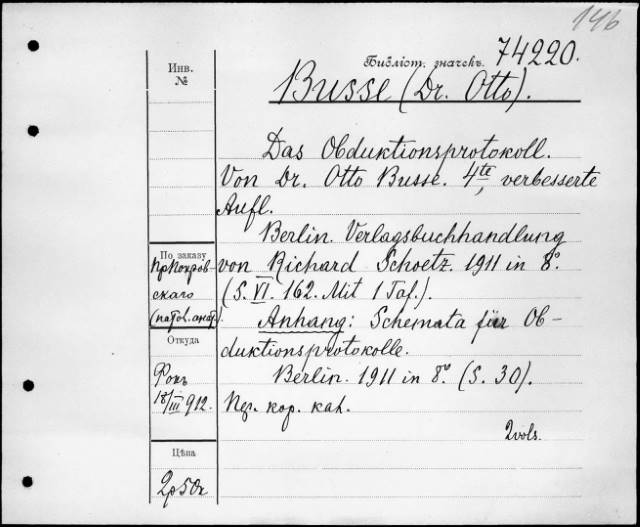 146
Библіот. значекъ. 74220.
Инв.
№
Busse (Dr. Otto).
Das Obduktionsprotokoll.
Von Dr. Otto Busse. 4te, verbesserte
Aufl.
Berlin. Verlagsbuchhandlung
von Richard Schoetz. 1911 in 8º.
(S. VI. 162. Mit 1 Taf.).
Anhang: Schemata für Ob-
duktionsprotokolle.
Berlin. 1911 in 8º. (S. 30).
кор.
2 vols.
По заказу
Пр. Покров-
скаго
(патол. анат.).
Откуда
18/III 912.
Цѣна
2р 50к